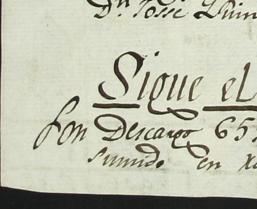 Dn. Josse
Sigue el
Son Descargo 65
sumido en